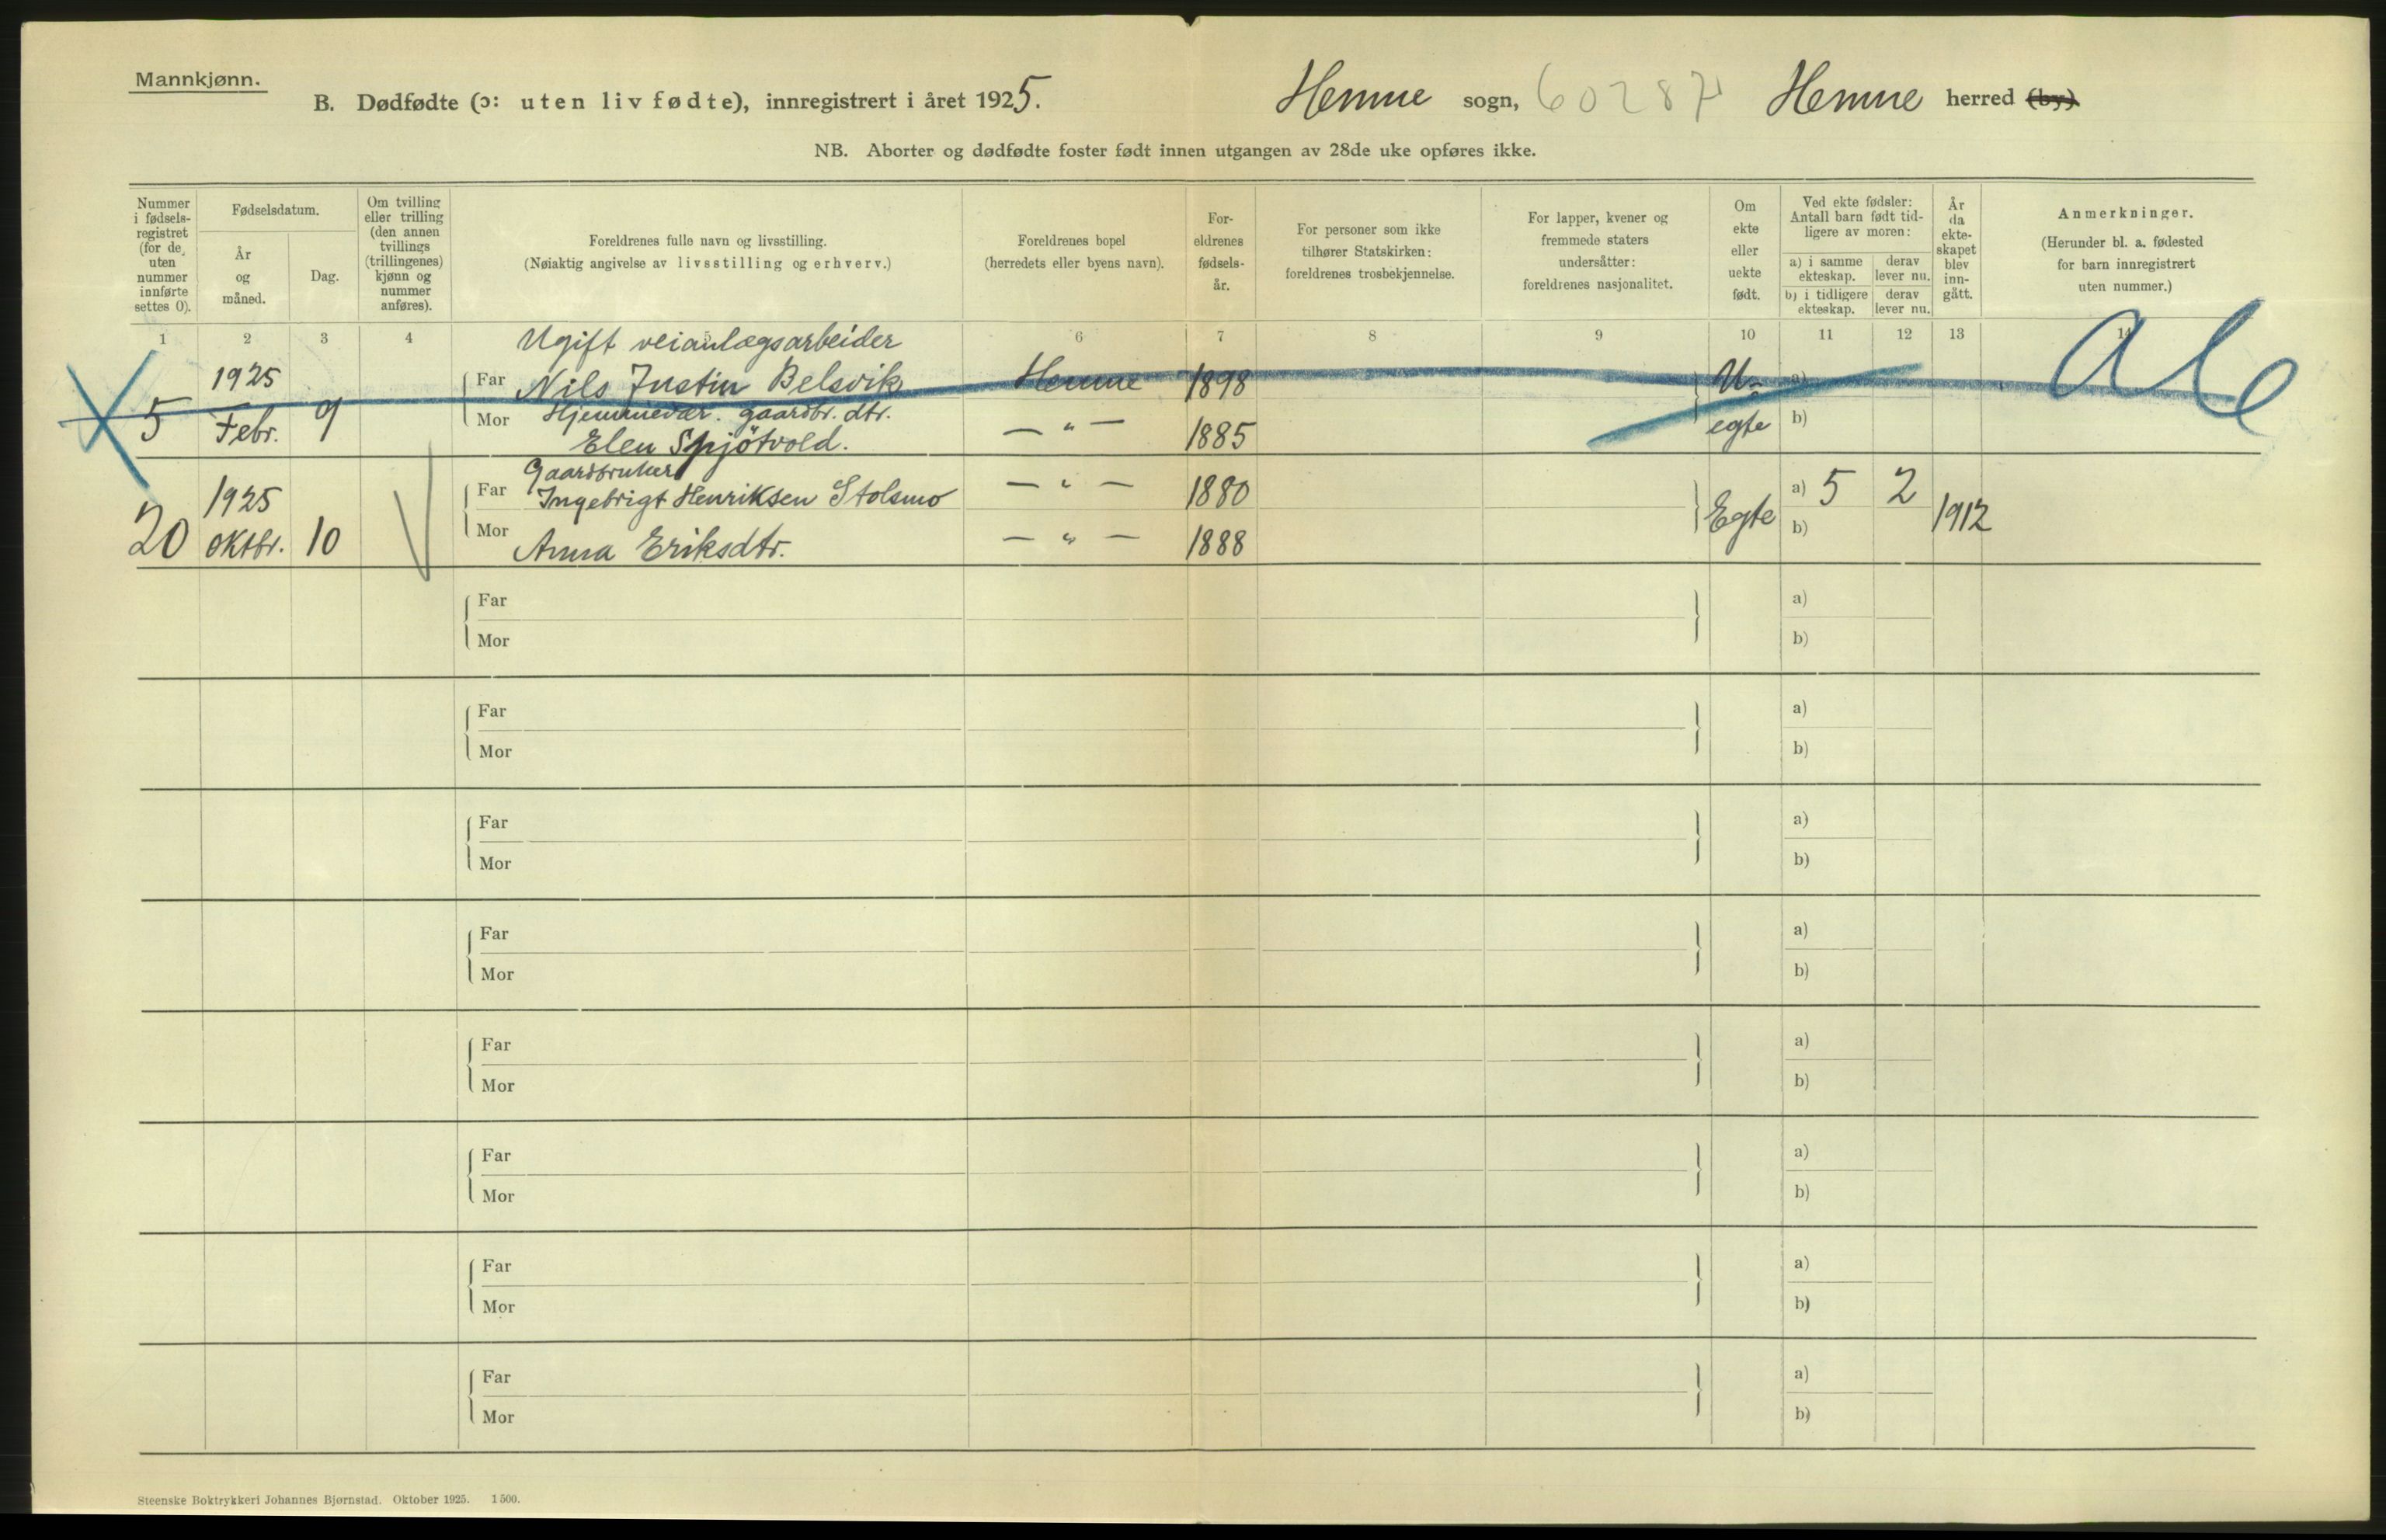 Mannkjønn.
B. Dødfødte (ɔ: uten liv fødte), innregistrert i året 1925. Hemne sogn, 60287 Hemne herred (by)
NB. Aborter og dødfødte foster født innen utgangen av 28de uke opføres ikke.
Nummer i fødsels- registret (for de uten nummer innførte settes 0).
Fødselsdatum.
År og måned.
Dag.
Om tvilling eller trilling (den annen tvillings (trillingenes) kjønn og nummer anføres).
Foreldrenes fulle navn og livsstilling.
(Nøiaktig angivelse av livsstilling og erhverv.)
Foreldrenes bopel
(herredets eller byens navn).
For- eldrenes fødsels- år.
For personer som ikke tilhører Statskirken: foreldrenes trosbekjennelse.
For lapper, kvener og fremmede staters undersåtter: foreldrenes nasjonalitet.
Om ekte eller uekte født.
Ved ekte fødsler: Antall barn født tid- ligere av moren:
a) i samme ekteskap.
derav lever nu.
b) i tidligere ekteskap.
derav lever nu.
År da ekte- skapet blev inn- gått.
Anmerkninger.
(Herunder bl. a. fødested for barn innregistrert uten nummer.)
1 2 3 4 5 6 7 8 9 10 11 12 13 14
Ugift veianlægsarbeider
5 1925 Febr. 9 Far Nils Justin Belsvik Hemne 1898 U- a)
Mor Hjemmevær. gaardbr. dtr.
Elen Spjötvold. — " — 1885 egte b)
Gaardbruker
20 1925 Oktbr. 10 Far Ingebrigt Henriksen Stolsmo — " — 1880 Egte a) 5 2 1912
Mor Anna Eriksdtr. — " — 1888 b)
Far a)
Mor b)
Far a)
Mor b)
Far a)
Mor b)
Far a)
Mor b)
Far a)
Mor b)
Far a)
Mor b)
Far a)
Mor b)
Far a)
Mor b)
Steenske Boktrykkeri Johannes Bjørnstad. Oktober 1925. 1 500.